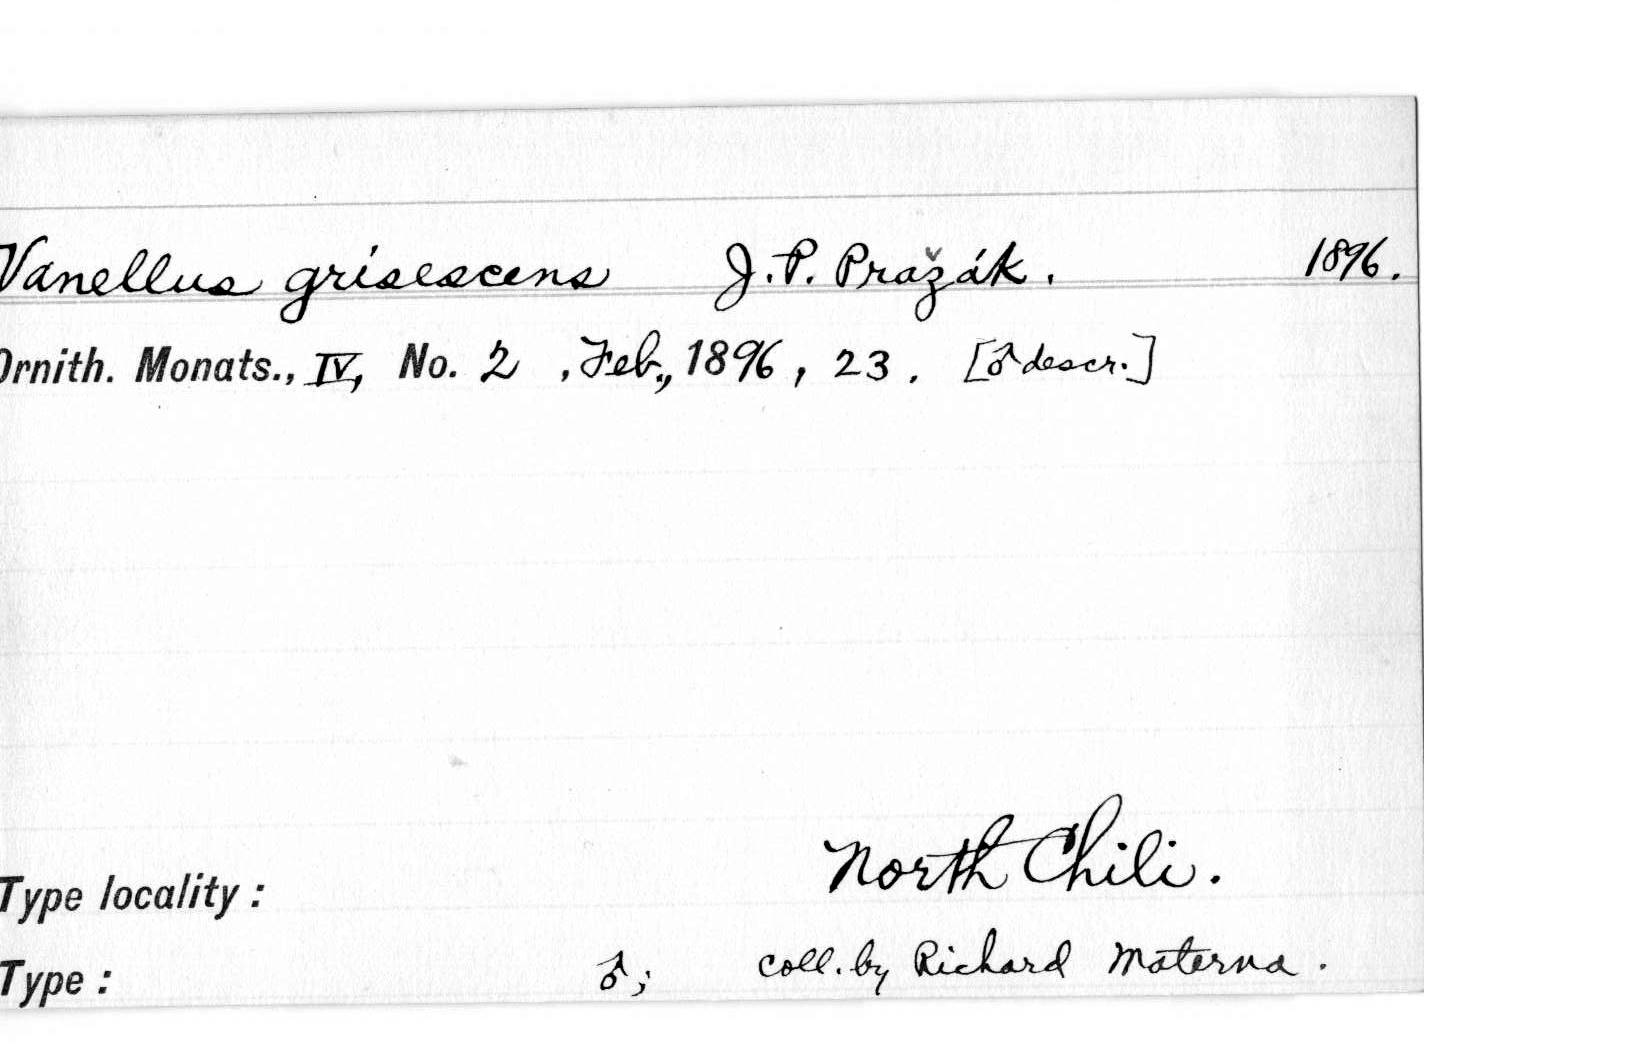 Vanellus grisescens J. P. Pražák. 1896.
Ornith. Monats., IV, No. 2, Feb., 1896, 23. [♂ descr.]
North Chili.
Type locality:
Type: ♂; coll. by Richard Materna.